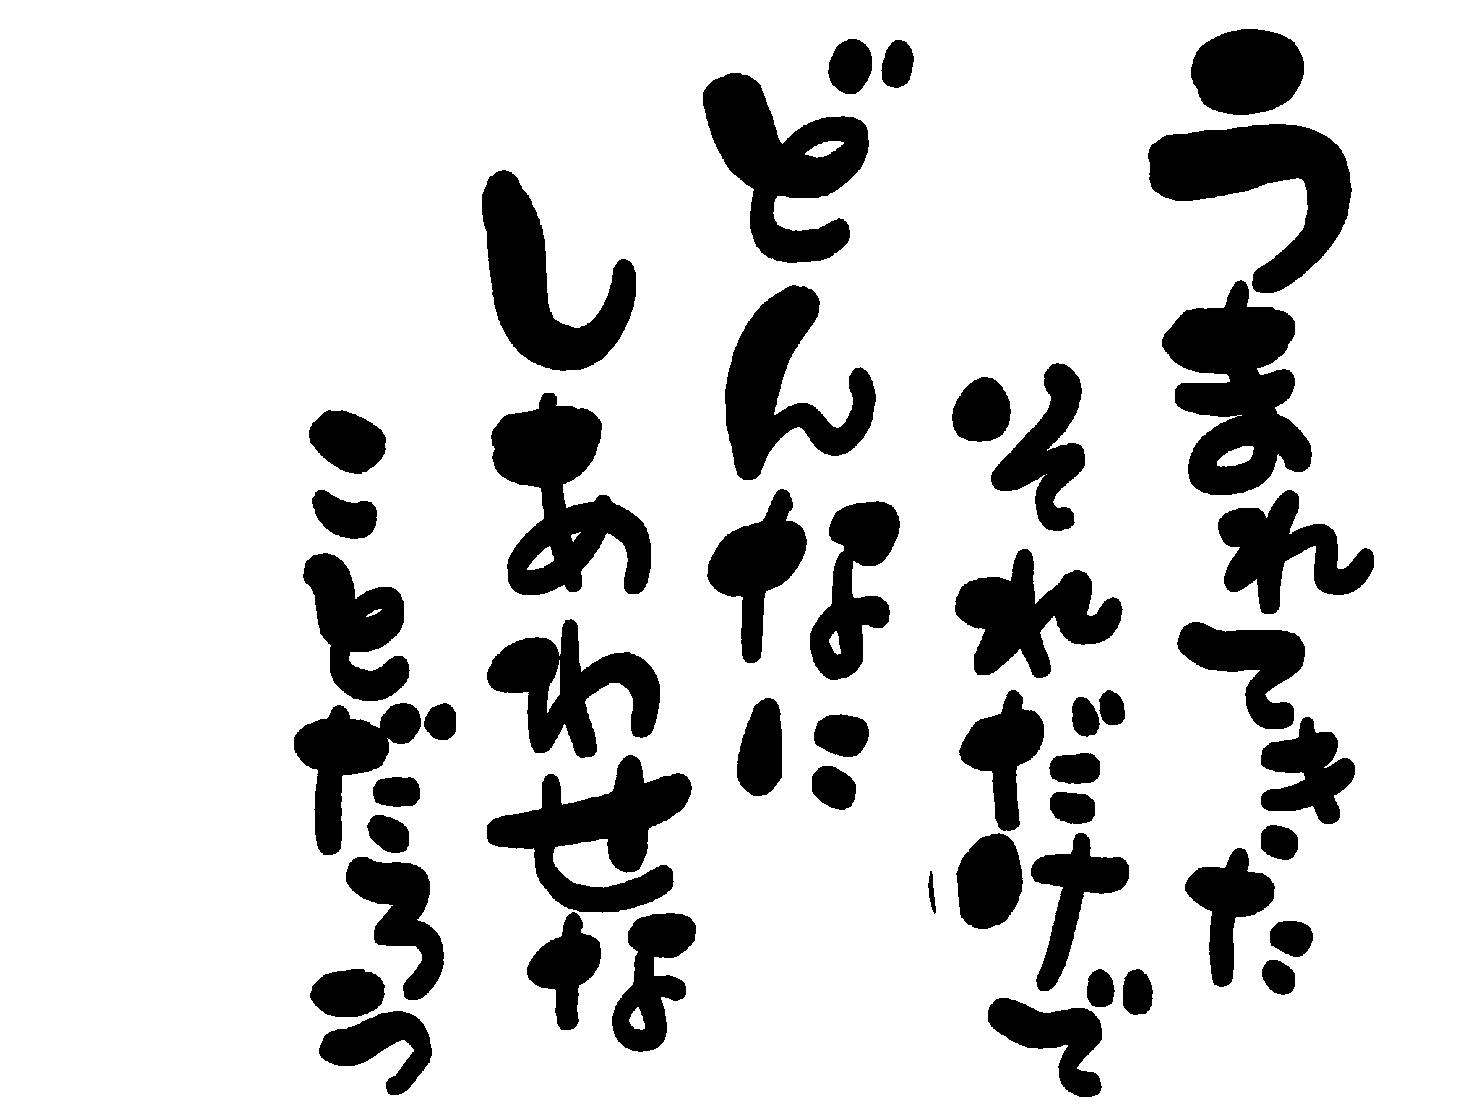 うまれてきた
それだけで
どんなに
しあわせな
ことだろう